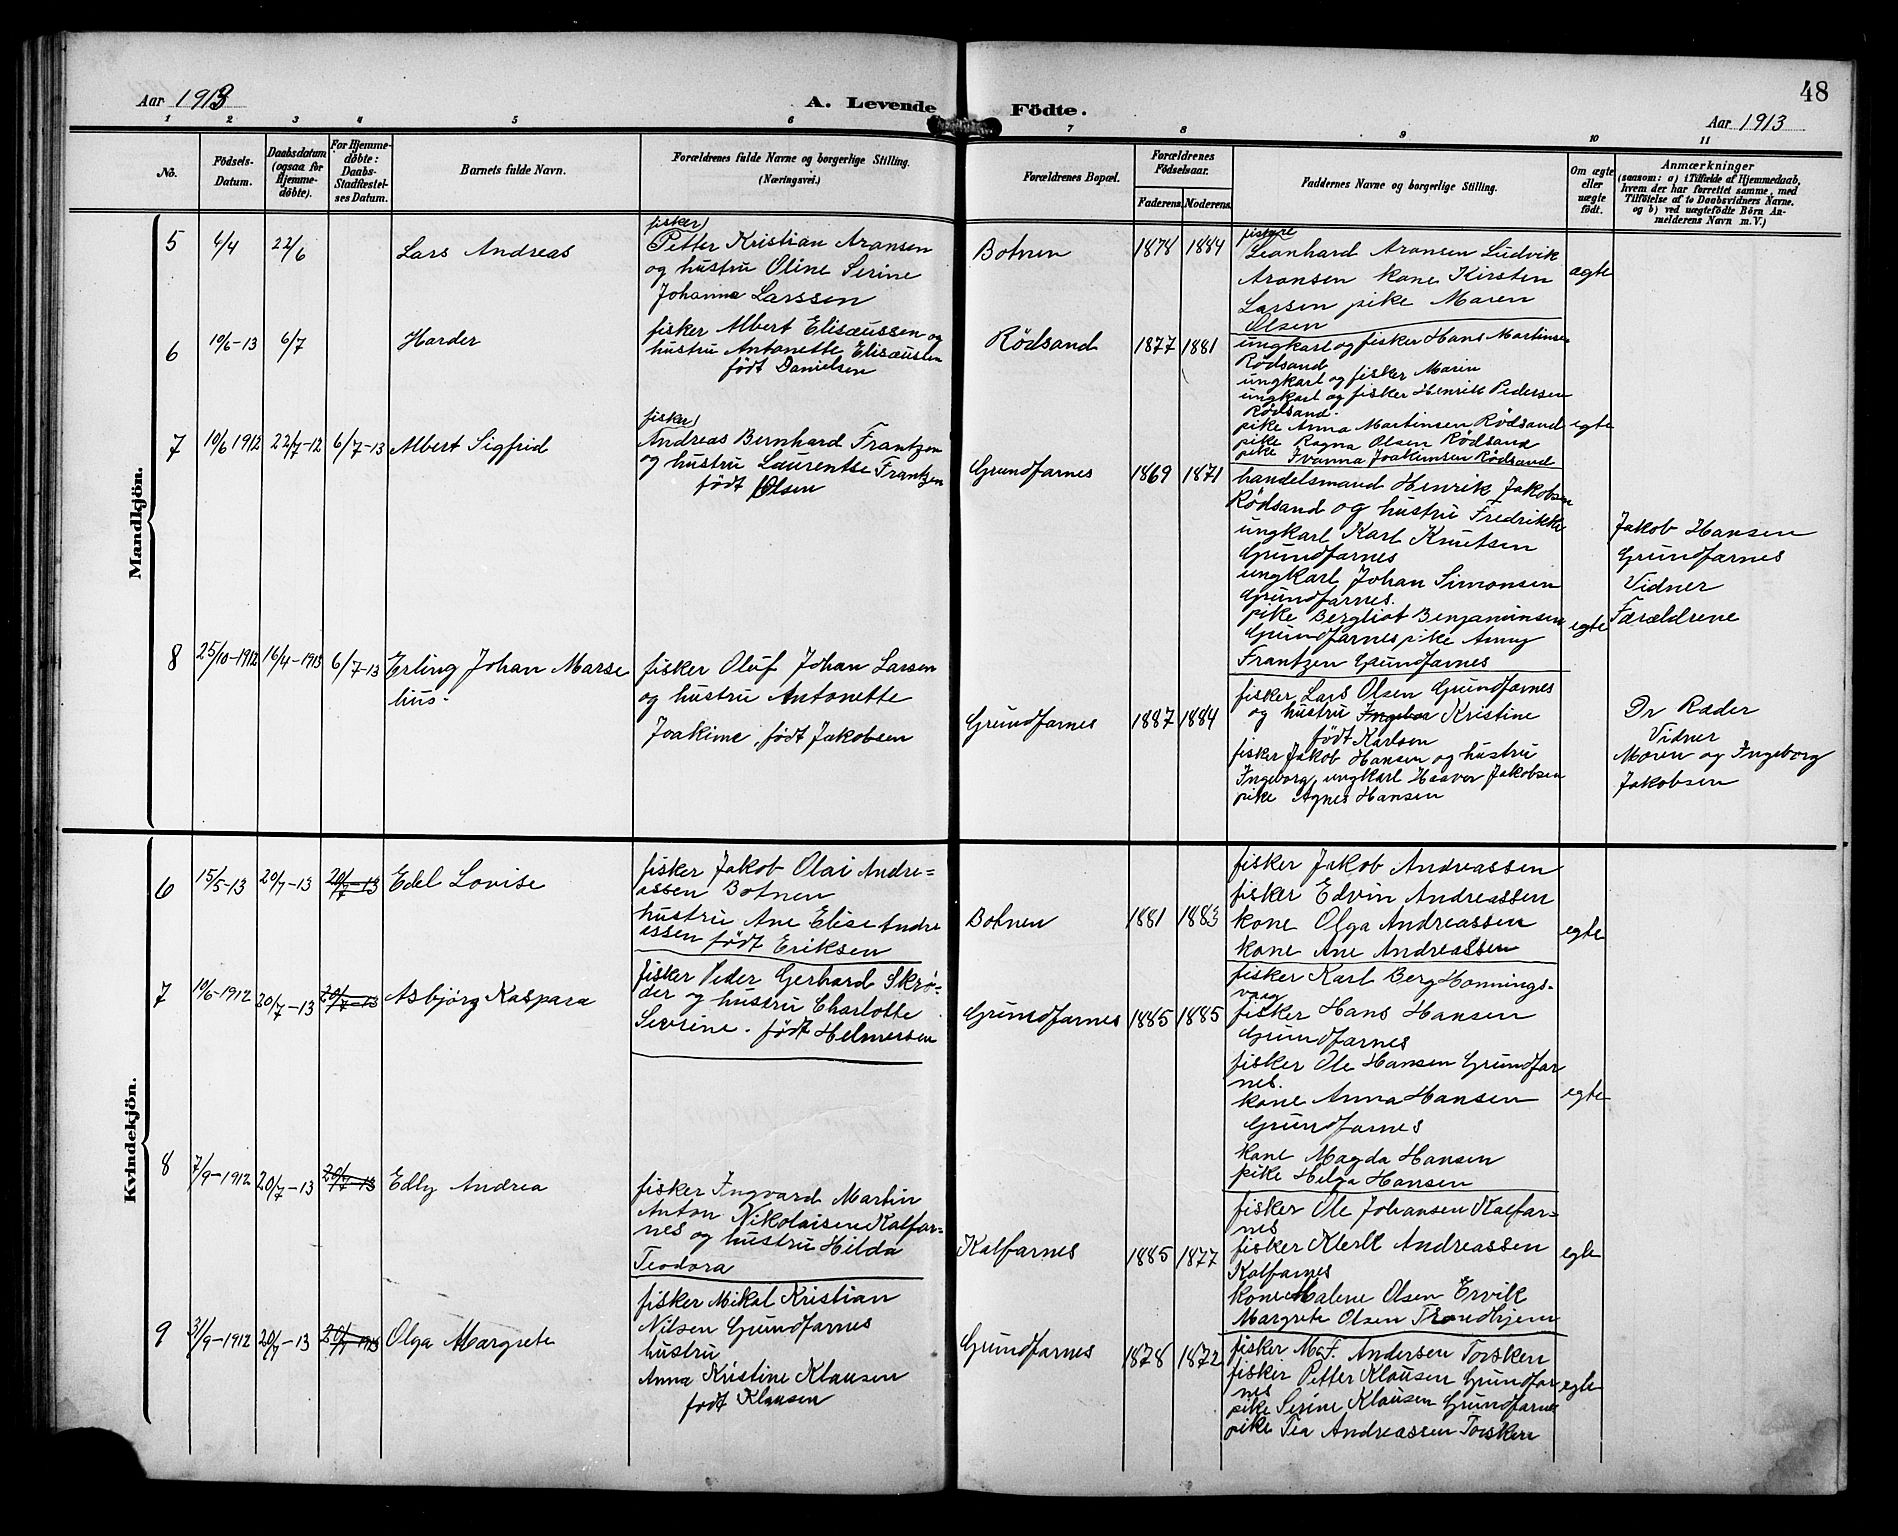 Aar 1913
A. Levende Födte.
48
Aar 1913
1 2 3 4 5 6 7 8 9 10 11
No.
Födsels-
Datum.
Daabsdatum
(ogsaa for
Hjemme-
döbte).
For Hjemme-
döbte:
Daabs-
Stadfæstel-
ses Datum.
Barnets fulde Navn.
Forældrenes fulde Navne og borgerlige Stilling.
(Næringsvei.)
Forældrenes Bopæl.
Forældrenes
Födselsaar.
Faderens. Moderens.
Faddernes Navne og borgerlige Stilling.
Om ægte
eller
uægte
födt.
Anmærkninger
(saasom: a) i Tilfælde af Hjemmedaab,
hvem der har forrettet samme, med
Tilföielse af to Daabsvidners Navne.
og b) ved uægtefödte Börn An-
melderens Navn m. V.)
Mandkjön.
5 4/4 22/6 Lars Andreas
fisker
Petter Kristian Aronsen
og hustru Oline Serine
Johanna Larssen
Botnen 1878 1884
fiskere
Leonhard Aronsen Ludvik
Aronsen kone Kirsten
Larsen pike Maren
Olsen
ægte
6 10/6-13 6/7 Harder
fisker Albert Elisæussen og
hustru Antonette Elisæussen
født Danielsen
Rödsand 1877 1881
ungkarl og fisker Hans Martinsen
Rødsand
ungkarl og fisker Marin
ungkarl og fisker Henrik Pedersen
Rødsand.
pike Anna Martinsen Rødsand
pike Ragna Olsen Rødsand
pike Ivanna Joakimsen Rødsand
egte
7 10/6 1912 22/7-12 6/7-13 Albert Sigfrid
fisker
Andreas Bernhard Frantzen
og hustru Laurentse Frantzen
født Olsen
Grundfarnes 1869 1871
handelsmand Henrik Jakobsen
Rödsand og hustru Fredrikke
ungkarl Karl Knutsen
Grundfarnes
ungkarl Johan Simonsen
Grundfarnes.
pike Bergliot Benjaminsen
Grundfarnes pike Anny
Frantzen Grundfarnes
egte
Jakob Hansen
Grundfarnes
Vidner
Forældrene
8 25/10-1912 16/4-1913 6/7-13 Erling Johan Marse
lius.
fisker Oluf Johan Larsen
og hustru Antonette
Joakime, født Jakobsen
Grundfarnes 1887 1884
fisker Lars Olsen Grundfarnes
og hustru Ingebor Kristine
født Karlsen
fisker Jakob Hansen og hustru
Ingeborg, ungkarl Haavor Jakobsen
pike Agnes Hansen
Dr Rader
Vidner
Maren og Ingeborg
Jakobsen
Kvindekjön.
6 15/5-13 20/7-13 20/7-13 Edel Lovise
fisker Jakob Olai Andre=
assen Botnen
hustru Ane Elise Andre
assen født Eriksen
Botnen 1881 1883
fisker Jakob Andreassen
fisker Edvin Andreassen
kone Olga Andreassen
kone Ane Andreassen
egte
7 10/6-1912 20/7-13 20/7-13 Asbjørg Kaspara
fisker Peder Gerhard Skrø-
der og hustru Charlotte
Sevrine. født Helmersen
Grundfarnes 1885 1885
fisker Karl Berg Honnings-
vaag
fisker Hans Hansen
Grundfarnes
fisker Ole Hansen Grundfar
nes.
kone Anna Hansen
Grundfarnes
kone Magda Hansen
pike Helga Hansen
egte
8 7/9-1912 20/7-13 20/7-13 Edly Andrea
fisker Ingvard Martin
Anton Nikolaisen Kalfar=
nes og hustru Hilda
Teodora
Kalfarnes 1885 1877
fisker Ole Johansen Kalfar-
nes
fisker Andreassen
Kalfarnes
kone Malene Olsen Ervik
Margrete Olsen Trondhjem
egte
9 3/9-1912 20/7-13 20/7-1913 Olga Margrete
fisker Mikal Kristian
Nilsen Grundfarnes
hustru
Anna Kristine Klausen
født Klausen
Grundfarnes 1878 1872
fisker Andersen Torsken
fisker Petter Klausen Grundfar
nes
pike Serine Klausen Grundfarne
pike Tea Andreassen Torsken
egte